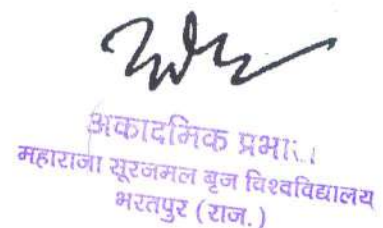 अकादमिक प्रभा
महाराजा सूरजमल बृज विश्वविद्यालय
भरतपुर (राज.)